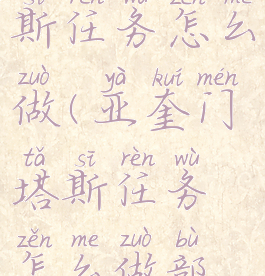 sī rèn wù zěn me
斯任务怎么
zuò yà kuí mén
做(亚奎门
tǎ sī rèn wù
塔斯任务
zěn me zuò bù
怎么做部